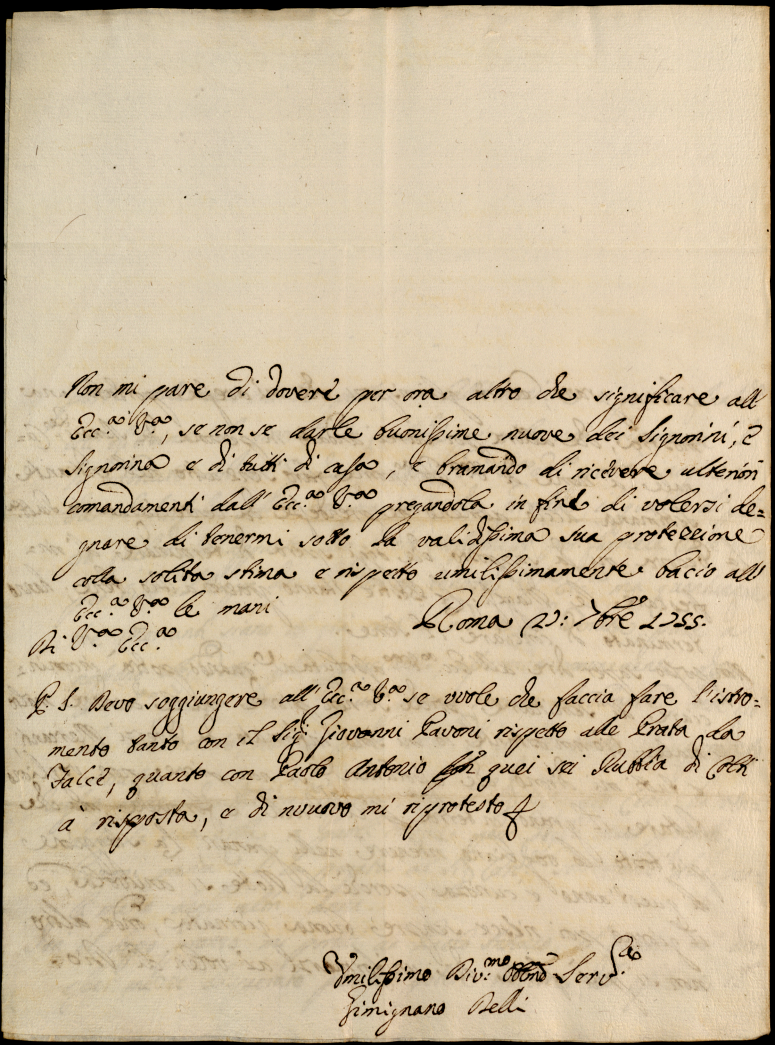 Non mi pare di dovere per ora altro che significare all'
Ecc.ª V.ª, se non se darle buonissime nuove dei Signorini, e
Signorina e di tutti di casa, e bramando di ricevere ulteriori
comandamenti dall' Ecc.ª V.ª pregandola in fine di volersi de=
gnare di tenermi sotto la validissima sua protezzione
colla solita stima e rispetto umilissimamente bacio all'
Ecc.ª V.ª le mani
Roma 7bre 1755.
Di V.ª Ecc.ª
P. S. Devo soggiungere all' Ecc.ª V.ª se vuole che faccia fare l'istro=
mento tanto con il Sig.r Giovanni Pavoni rispetto alle Prata da
Falce, quanto con Paolo Antonio quei sei Rubbia di
à risposta, e di nuovo mi riprotesto
Umilissimo Div.mo Obbmo Serv.
Gimignano Belli